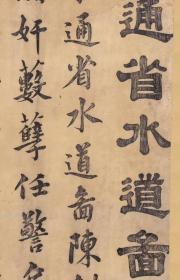 通省水道啚
通省水道啚陳
奸藪孽任警